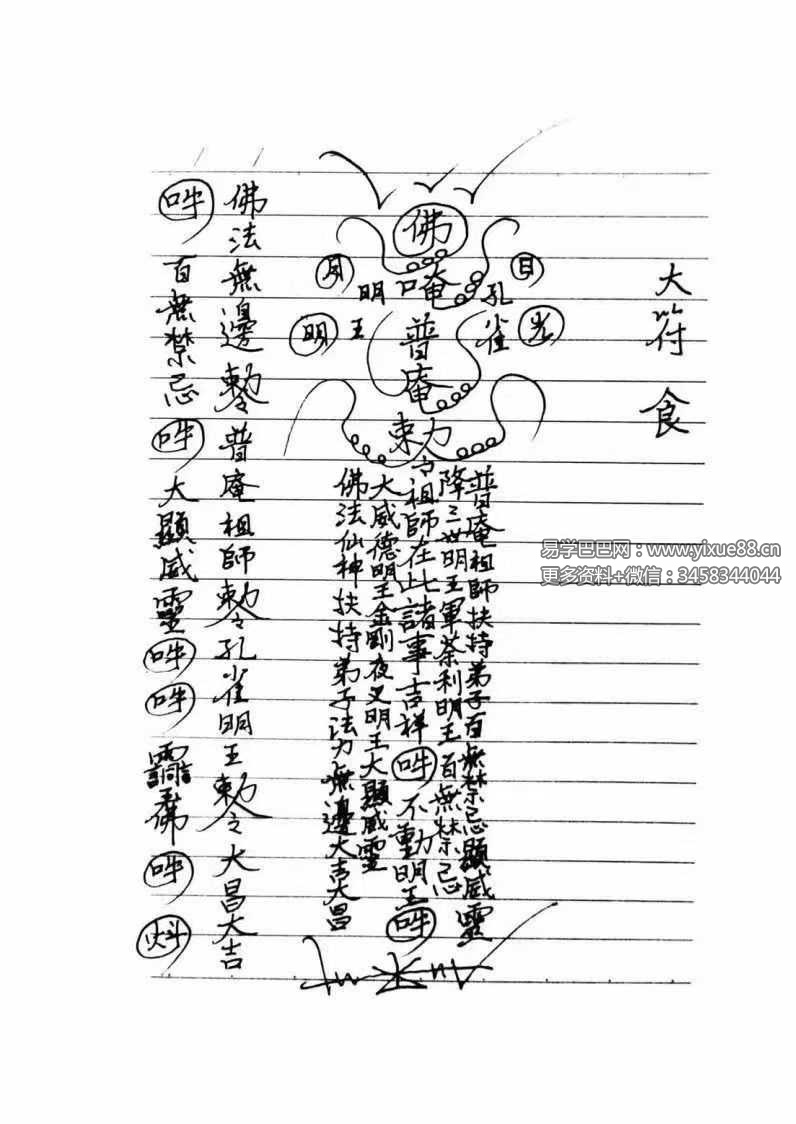 大符食
佛
月 日
明 唵 孔
明 王 普 雀 光
庵
勅令
普庵祖師扶持弟子百無禁忌顯威靈
降三世明王軍荼利明王百無禁忌
祖師在此諸事吉祥吽不動明王吽
大威德明王金剛夜叉明王大顯威靈
佛法仙神扶持弟子法力無邊大吉大昌
佛法無邊勅令普庵祖師勅令孔雀明王勅令大昌大吉
吽百無禁忌吽大顯威靈吽吽佛吽
易学巴巴网：www.yixue88.cn
更多资料+微信：3458344044